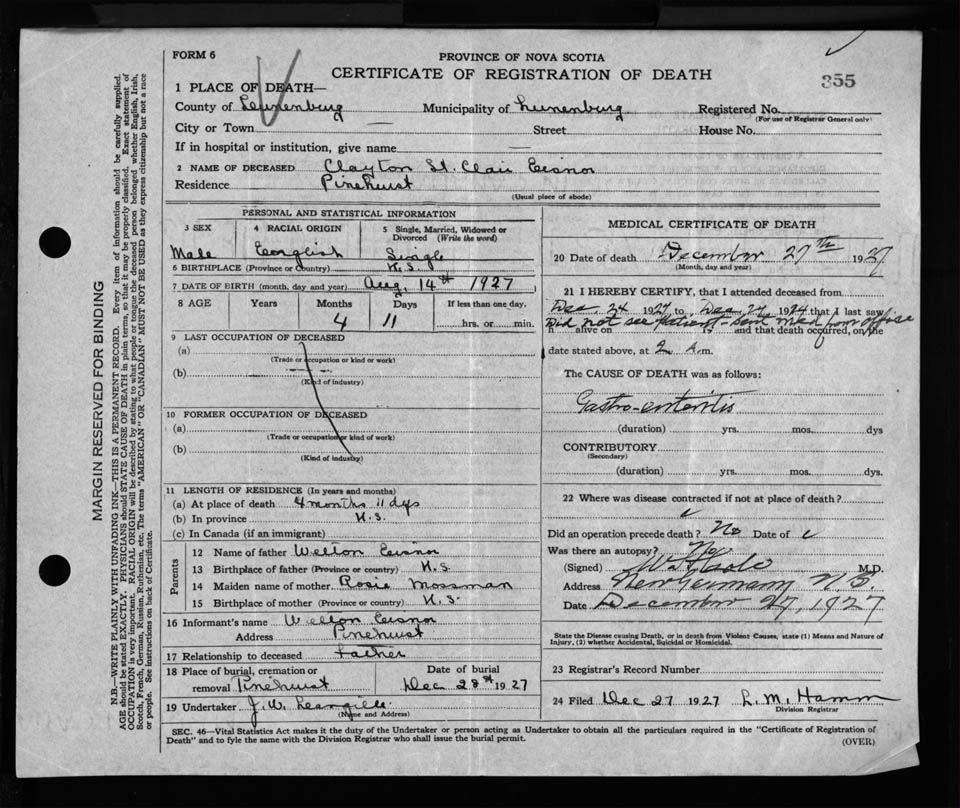 FORM 6
PROVINCE OF NOVA SCOTIA
CERTIFICATE OF REGISTRATION OF DEATH
355
1 PLACE OF DEATH—
County of Lunenburg Municipality of Lunenburg Registered No.
(For use of Registrar General only)
City or Town — Street House No.
If in hospital or institution, give name —
2 NAME OF DECEASED Clayton St. Clair Eisnor
Residence Pinehurst
(Usual place of abode)
PERSONAL AND STATISTICAL INFORMATION
3 SEX 4 RACIAL ORIGIN 5 Single, Married, Widowed or Divorced (Write the word)
Male English Single
6 BIRTHPLACE (Province or Country) N.S.
7 DATE OF BIRTH (month, day and year) Aug. 14th 1927
8 AGE Years Months Days If less than one day,
4 11 hrs. or min.
9 LAST OCCUPATION OF DECEASED
(a)
(Trade or occupation or kind or work)
(b)
(Kind of industry)
10 FORMER OCCUPATION OF DECEASED
(a)
(Trade or occupation or kind of work)
(b)
(Kind of industry)
11 LENGTH OF RESIDENCE (In years and months)
(a) At place of death 4 months 11 dys
(b) In province N.S.
(c) In Canada (if an immigrant)
Parents
12 Name of father Welton Eisnor
13 Birthplace of father (Province or country) N.S.
14 Maiden name of mother Rosie Mossman
15 Birthplace of mother (Province or country) N.S.
16 Informant's name Welton Eisnor
Address Pinehurst
17 Relationship to deceased Father
18 Place of burial, cremation or Date of burial
removal Pinehurst Dec 28th 1927
19 Undertaker J. W.
(Name and Address)
MEDICAL CERTIFICATE OF DEATH
20 Date of death December 27th 1927
(Month, day and year)
21 I HEREBY CERTIFY, that I attended deceased from
Dec 24 1927 to Dec 27, 1924 that I last saw
Did not see patient - sent med from office
h alive on and that death occurred, on the
date stated above, at 2 A.m.
The CAUSE OF DEATH was as follows:
Gastro-enteritis
(duration) yrs. mos. dys
CONTRIBUTORY
(Secondary)
(duration) yrs. mos. dys.
22 Where was disease contracted if not at place of death?
Did an operation precede death? No Date of
Was there an autopsy? No
(Signed) M.D.
Address New Germany N.S.
Date December 27, 1927
State the Disease causing Death, or in death from Violent Causes, state (1) Means and Nature of
Injury, (2) whether Accidental, Suicidal or Homicidal.
23 Registrar's Record Number
24 Filed Dec 27 1927 L. M. Hamm
Division Registrar
SEC. 46—Vital Statistics Act makes it the duty of the Undertaker or person acting as Undertaker to obtain all the particulars required in the "Certificate of Registration of
Death" and to fyle the same with the Division Registrar who shall issue the burial permit.
(OVER)
MARGIN RESERVED FOR BINDING
N.B.—WRITE PLAINLY WITH UNFADING INK—THIS IS A PERMANENT RECORD. Every item of information should be carefully supplied.
AGE should be stated EXACTLY. PHYSICIANS should STATE CAUSE OF DEATH in plain terms, so that it may be properly classified. Exact statement of
OCCUPATION is very important. RACIAL ORIGIN will be described by stating to what people or tongue the deceased person belonged whether English, Irish,
Scotch, French, German, Russian, Ruthenian, etc. The terms "AMERICAN" OR "CANADIAN" MUST NOT BE USED as they express citizenship but not a race
or people. See instructions on back of Certificate.